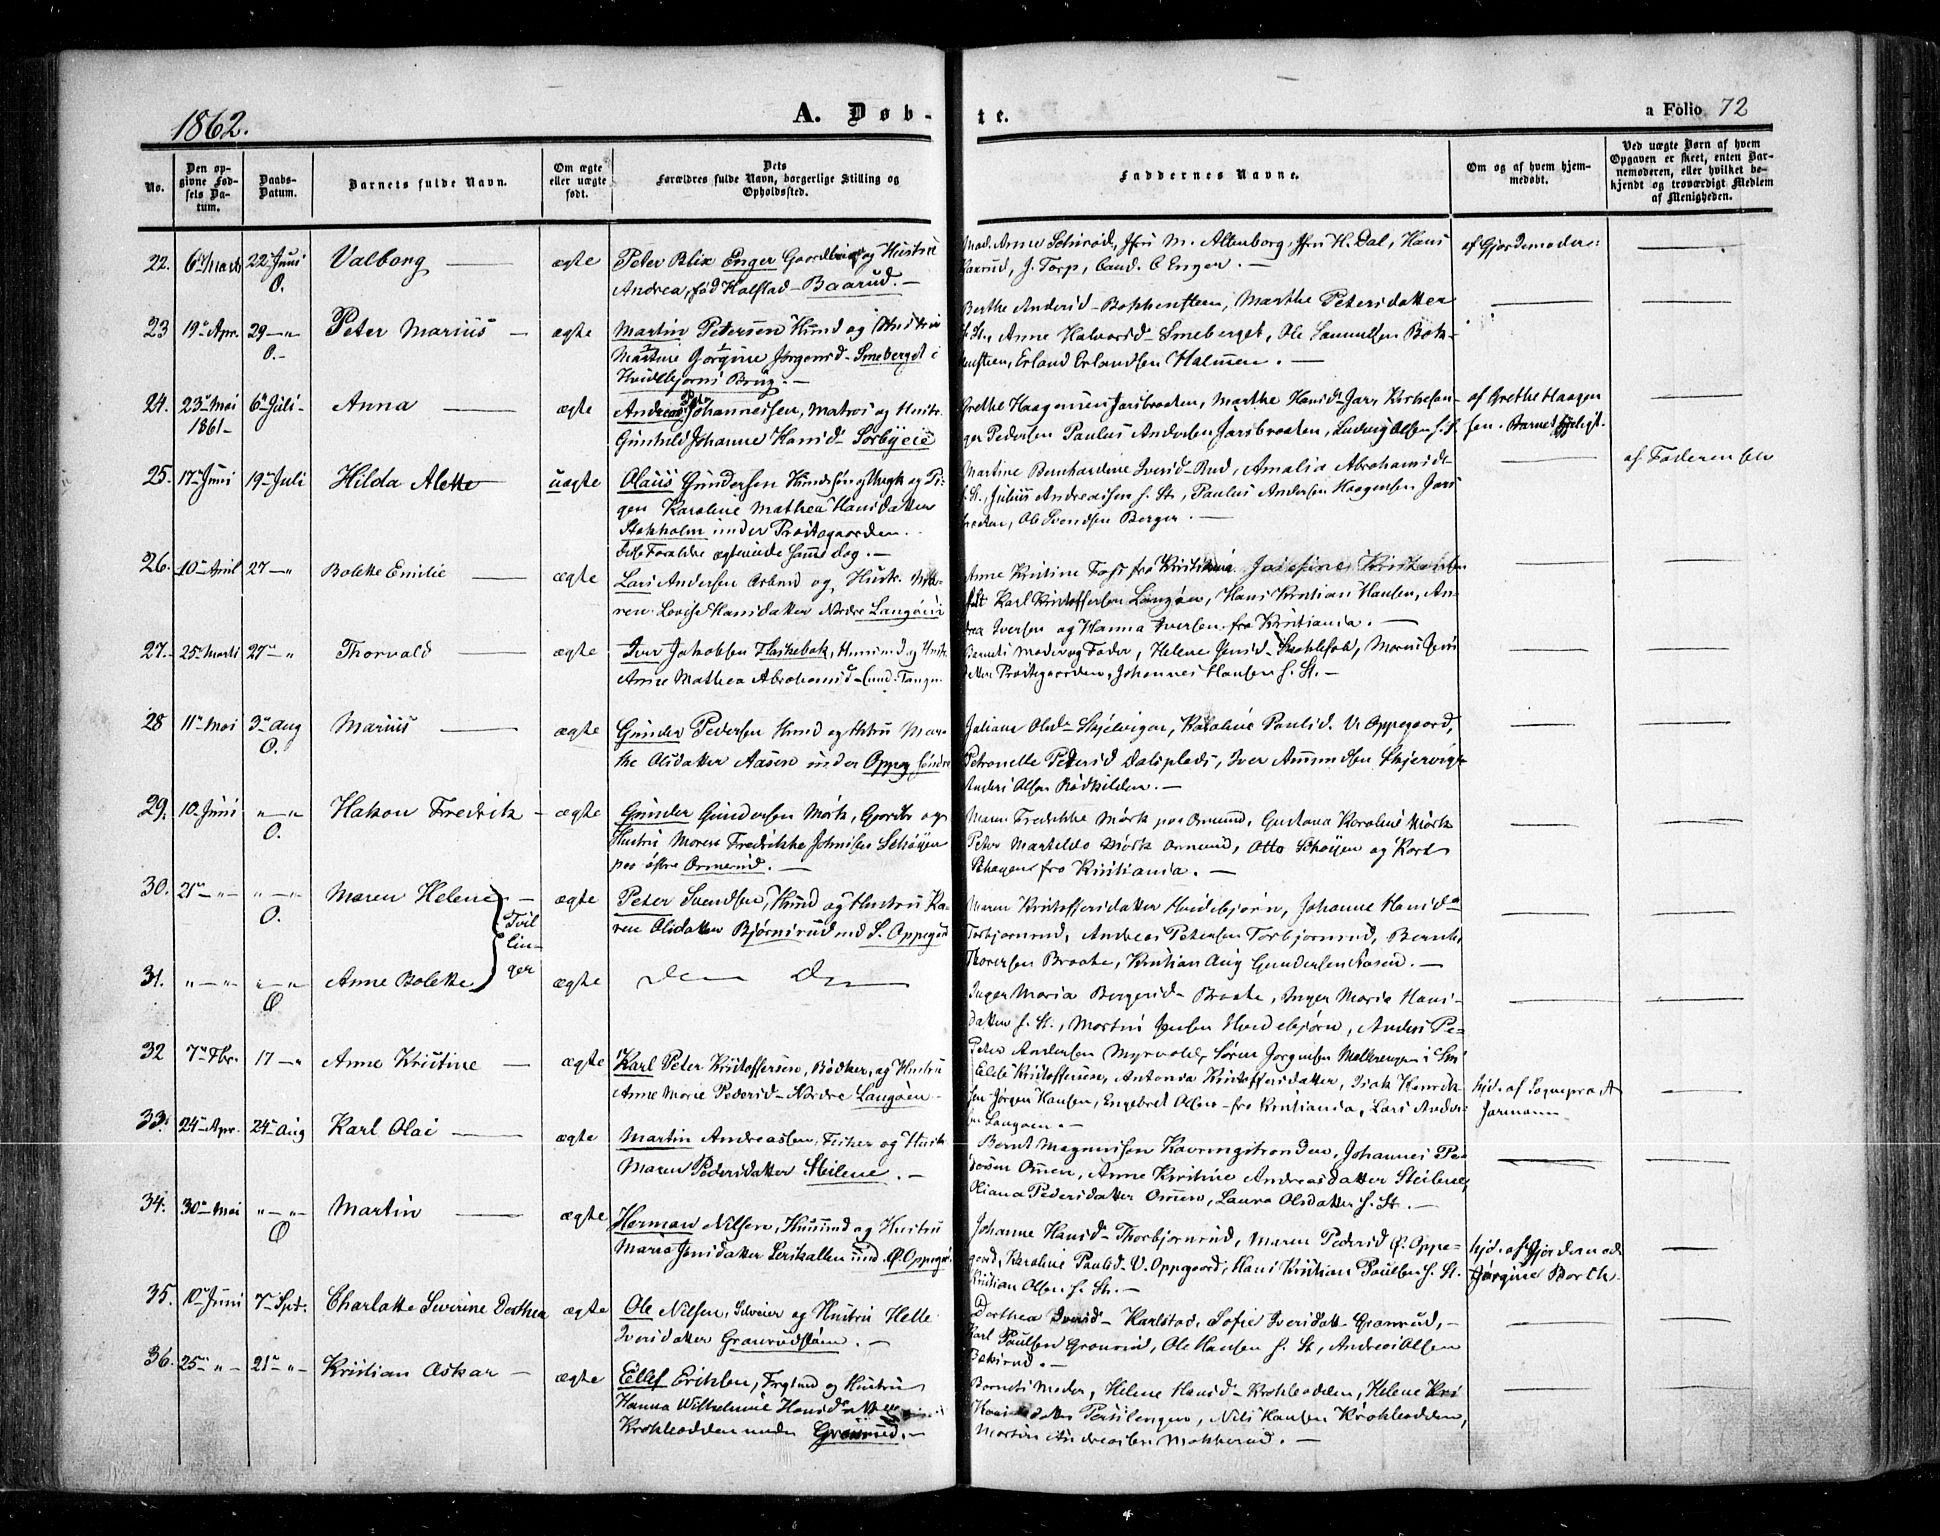 1862.
A. Døb-
te.
a Folio 72
No.
Den op-
givne Fød-
sels Da-
tum.
Daabs-
Datum.
Barnets fulde Navn.
Om ægte
eller uægte
født.
Dets
Forældres fulde Navn, borgerlige Stilling og
Opholdssted.
Faddernes Navne.
Om og af hvem hjem-
medøbt.
Ved uægte Børn af hvem
Opgaven er skeet, enten Bar-
nemoderen, eller hvilket be-
kjendt og troværdigt Medlem
af Menigheden.
22. 6te Marts 22 Juni Valborg — ægte Peter Blix Enger og Hustru
O. Andrea, fød Halstad - Baarud. —
Mad. Anne M. Altenborg, H. Dal, Hans
Baarud, J. Torp, Cand. C Enger. —
af Gjordemoder
23 19de Apr. 29 — " Peter Marius — ægte Martin Petersen Huusmd og Hustru
O. — Martine Jørgine Jørgensd - Smeberget i
Hvidebjørns Brug. —
Berthe Andersd - Bokkensteen, Marthe Petersdatter
S. St., Anne Halvorsd - Smeberget, Ole Samuelsen Bok-
kensteen, Erland Erlandsen Holmen. —
24. 23de Mai 6te Juli - Anna — ægte Andreas Johannessen, Matros og Hustr.
1861 - Gunhild Johanne Hansd. Sørbyeie
Grethe Haagensen Jarsbraaten, Marthe Hansd Jar,
ger Pedersen Paulus Andersen Jarsbraaten, Ludvig Olsen s. St
af Grethe Haagen
sen. Barnet sygeligt.
25. 17de Juni 19de Juli Hilda Alette uægte Olaus Gundersen og Pi-
gen Karoline Mathea Hansdatter
Stokholm under Prostegaarden.
disse Forældre ægteviede samme dag. —
Martine Bernhardine Iversd - Rud, Amalia Abrahamsdt
s. St., Julius Andreassen s. St., Paulus Andersen Haagensen Jars
braaten, Ole Svendsen Berger. —
af Faderen selv
26. 10de April 27 — " Bolette Emilie — ægte Lars Andersen og Hustr.
ren Lovise Hansdatter Nordre Langøen
Anne Kristine Foss fra Kristiania Josefine
Karl Kristoffersen Langøen, Hans Kristian Hansen, An-
drea Iversen og Hanna Iversen fra Kristiania. —
27. 25de Marts 27de " Thorvald — ægte Iver Jakobsen Flaskebæk, Huusmd og Hustr.
Anne Mathea Abrahamsd
Barnets Moder og Fader, Helene Jensd Maren Jens
datter Prostegaarden, Johannes Hansen s. St. —
28 11te Mai 3de Aug Marius — ægte Gunder Pedersen Huusmd og Hstru Mar-
O. the Olsdatter Aasen under Oppeg søndre
Juliane Olsd - Skjelvigen, Karoline Paulsd. V. Oppegaard,
Petronelle Pedersd Dalsplads, Iver Amundsen Skjervigen
Anders Olsen Rødkilden. —
29. 10. Juni " — " Hakon Fredrik - ægte Gunder Gundersen Mørk, Gaardbr og
O. Hustru Maren Fredrikke Johnsen Schøyen
paa østre Ormerud. —
Maren Fredrikke Mørk paa Ormerud, Gustava Karoline Mørk
Peter Mathilde Mørk Ormerud, Otto Schøyen og Karl
fra Kristiania. —
30. 21de — " " — " Maren Helene — ægte Peter Svendsen, Huusmd og Hustru Ka-
O. Tvil ren Olsdatter Bjørnsrud und S. Oppegrd
lin-
ger
Maren Kristoffersdatter Hvidebjørn, Johanne Hansda
Torbjørnrud, Andreas Petersen Torbjørnrud, Bernh.
Thoresen Braate, Kristian Aug Gundersen Aasen. —
31. " — " " — " Anne Bolette ægte Dem Do
O
Inger Maria Bergersd - Braate, Inger Maria Hans-
datter s. St., Martin Jensen Hvidebjørn, Anders Pe-
32 7de Fbr. 17 — " Anne Kristine — ægte Karl Peter Kristoffersen, Bødker, og Hustru
Anne Marie Pedersd - Nordre Langøen -
Peter Andersen Myrvold, Søren Jørgensen
Elise Kristoffersen, Antonia Kristoffersdatter, Isak Henrik-
sen Jørgen Hansen, Engebret Olsen fra Kristiania, Lars Ander-
sen Langøen. —
hjd. af Sognepræst
Jarmann
33. 24de Apr. 24de Aug Karl Olai — ægte Martin Andreassen, Fisker og Hustr.
Maren Pedersdatter Steilene. —
Bernt Magnussen Kavringstranden, Johannes Pe-
dersen Omen, Anne Kristine Andreasdatter Steilene,
Oliana Pedersdatter Omen, Laura Olsdatter s. St. —
34. 30de Mai " — " Martin — ægte Herman Nilsen, Huusmd og Hustru
O Maria Jensdatter und. Ø. Oppegrd
Johanne Hansd - Thorbjørnrud, Maren Pedersd Ø. Oppe-
gaard, Karoline Paulsd - V. Oppegaard, Hans Kristian Paulsen s. St.
Kristian Olsen s. St. —
hjd. af Gjordemod
Jørgine Borch.
35. 10de Juni 7de Spt. Charlotte Severine Dorthea ægte Ole Nilsen, Selveier og Hustru Helle
Iversdatter Granrudstøen. —
Dorthea Iversd - Karlstad, Sofie Iversdatt - Granrud, -
Karl Paulsen Granrud, Ole Hansen s. St, Andreas Olsen
Bakerud. —
36. 25de " - 21de " - Kristian Oskar — ægte Ellef Eriksen, og Hustru
Hanna Wilhelmine Hansdatter
Krokleodden under Granrud. —
Barnets Moder, Helene Hansd - Krokleodden, Helene
Nils Hansen Krokleodden,
Martin Andreassen Mokkerud. —